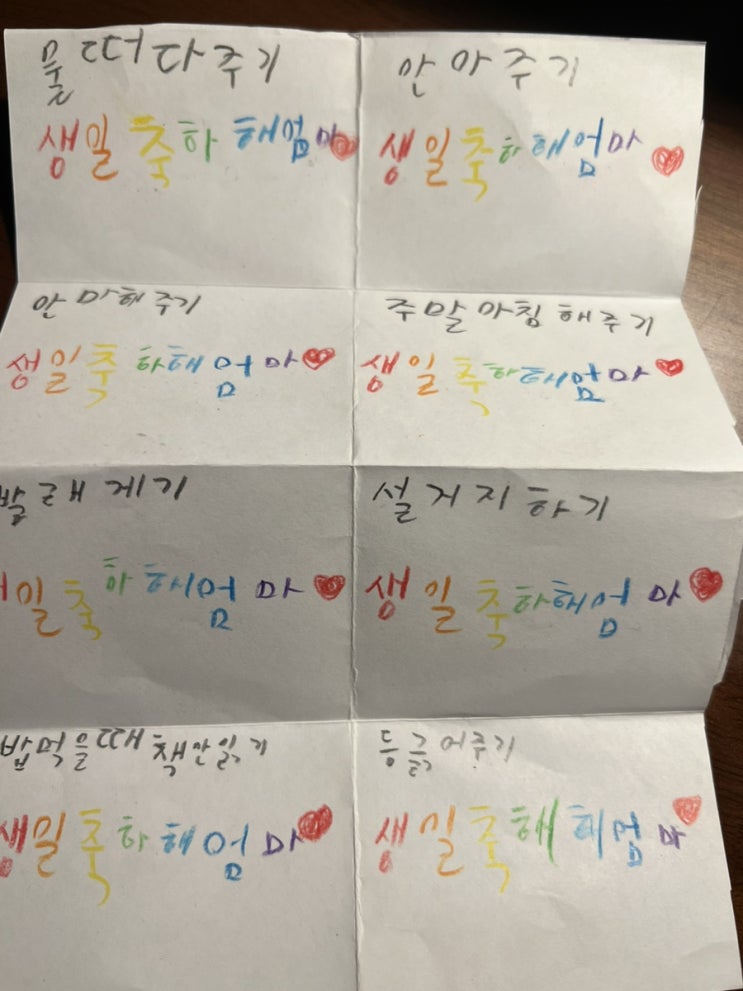 물떠다주기
생일축하해엄마
안아주기
생일축하해엄마
안마해주기
생일축하해엄마
주말아침해주기
생일축하해엄마
빨래게기
생일축하해엄마
설거지하기
생일축하해엄마
밥먹을때책안읽기
생일축하해엄마
등긁어주기
생일축해해엄마